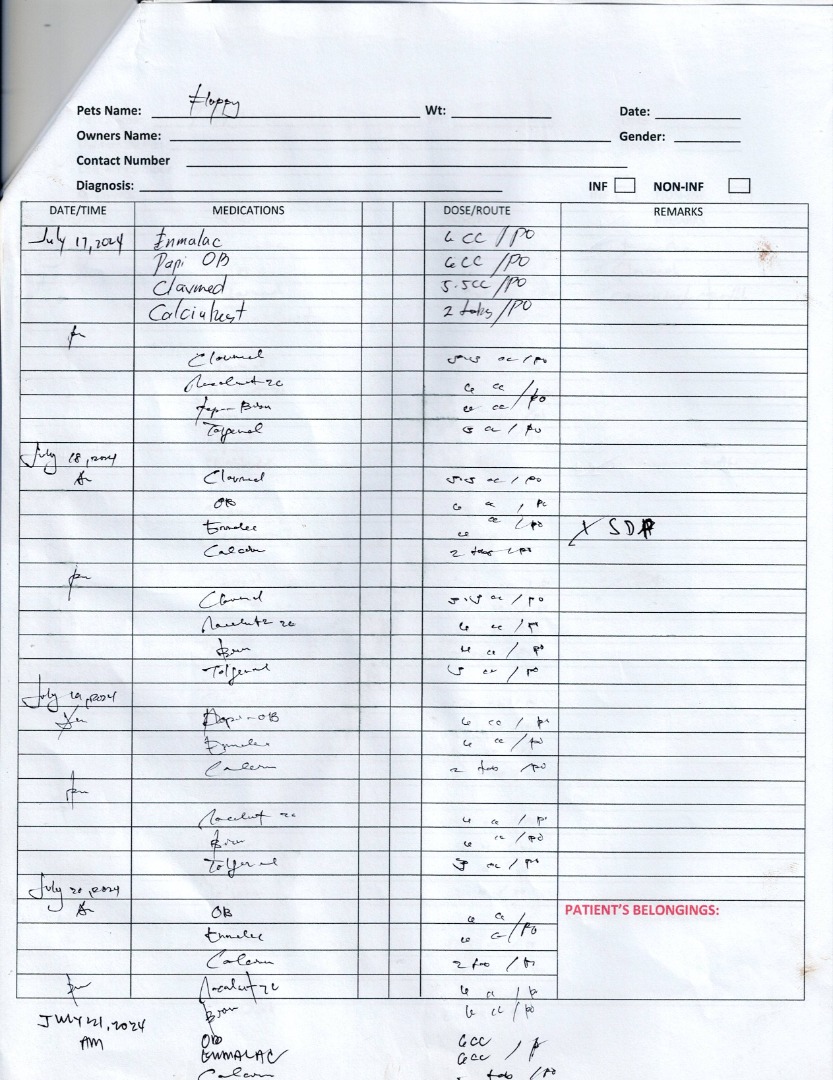 Pets Name: Floppy Wt: Date:
Owners Name: Gender:
Contact Number
Diagnosis: INF NON-INF
DATE/TIME MEDICATIONS DOSE/ROUTE REMARKS
July 17, 2024 Enmalac 6 CC / PO
Papi OB 6 CC / PO
Clavmed 5.5 CC / PO
2 tabs / PO
pm
Clavmed 5.5 cc / po
6 cc / po
cc / po
Tolfenol 5 cc / po
July 18, 2024
Am Clavmed 5.5 cc / po
OB 6 cc / po
Enmalac 6 cc / po X SDA
Calcium 2 tabs / po
pm
Clavmed 5.5 cc / po
6 cc / po
6 cc / po
Tolfenol 5 cc / po
July 19, 2024
Papi-OB 6 cc / po
Enmalac 6 cc / po
Calcium 2 tab / po
pm
6 cc / po
6 cc / po
Tolfenol 5 cc / po
July 20, 2024
Am OB 6 cc PATIENT'S BELONGINGS:
Enmalac 6 cc / po
Calcium 2 tab / po
pm 6 cc / po
6 cc / po
JULY 21, 2024
AM OB 6CC
ENMALAC 6CC / p
Calcium tab / po